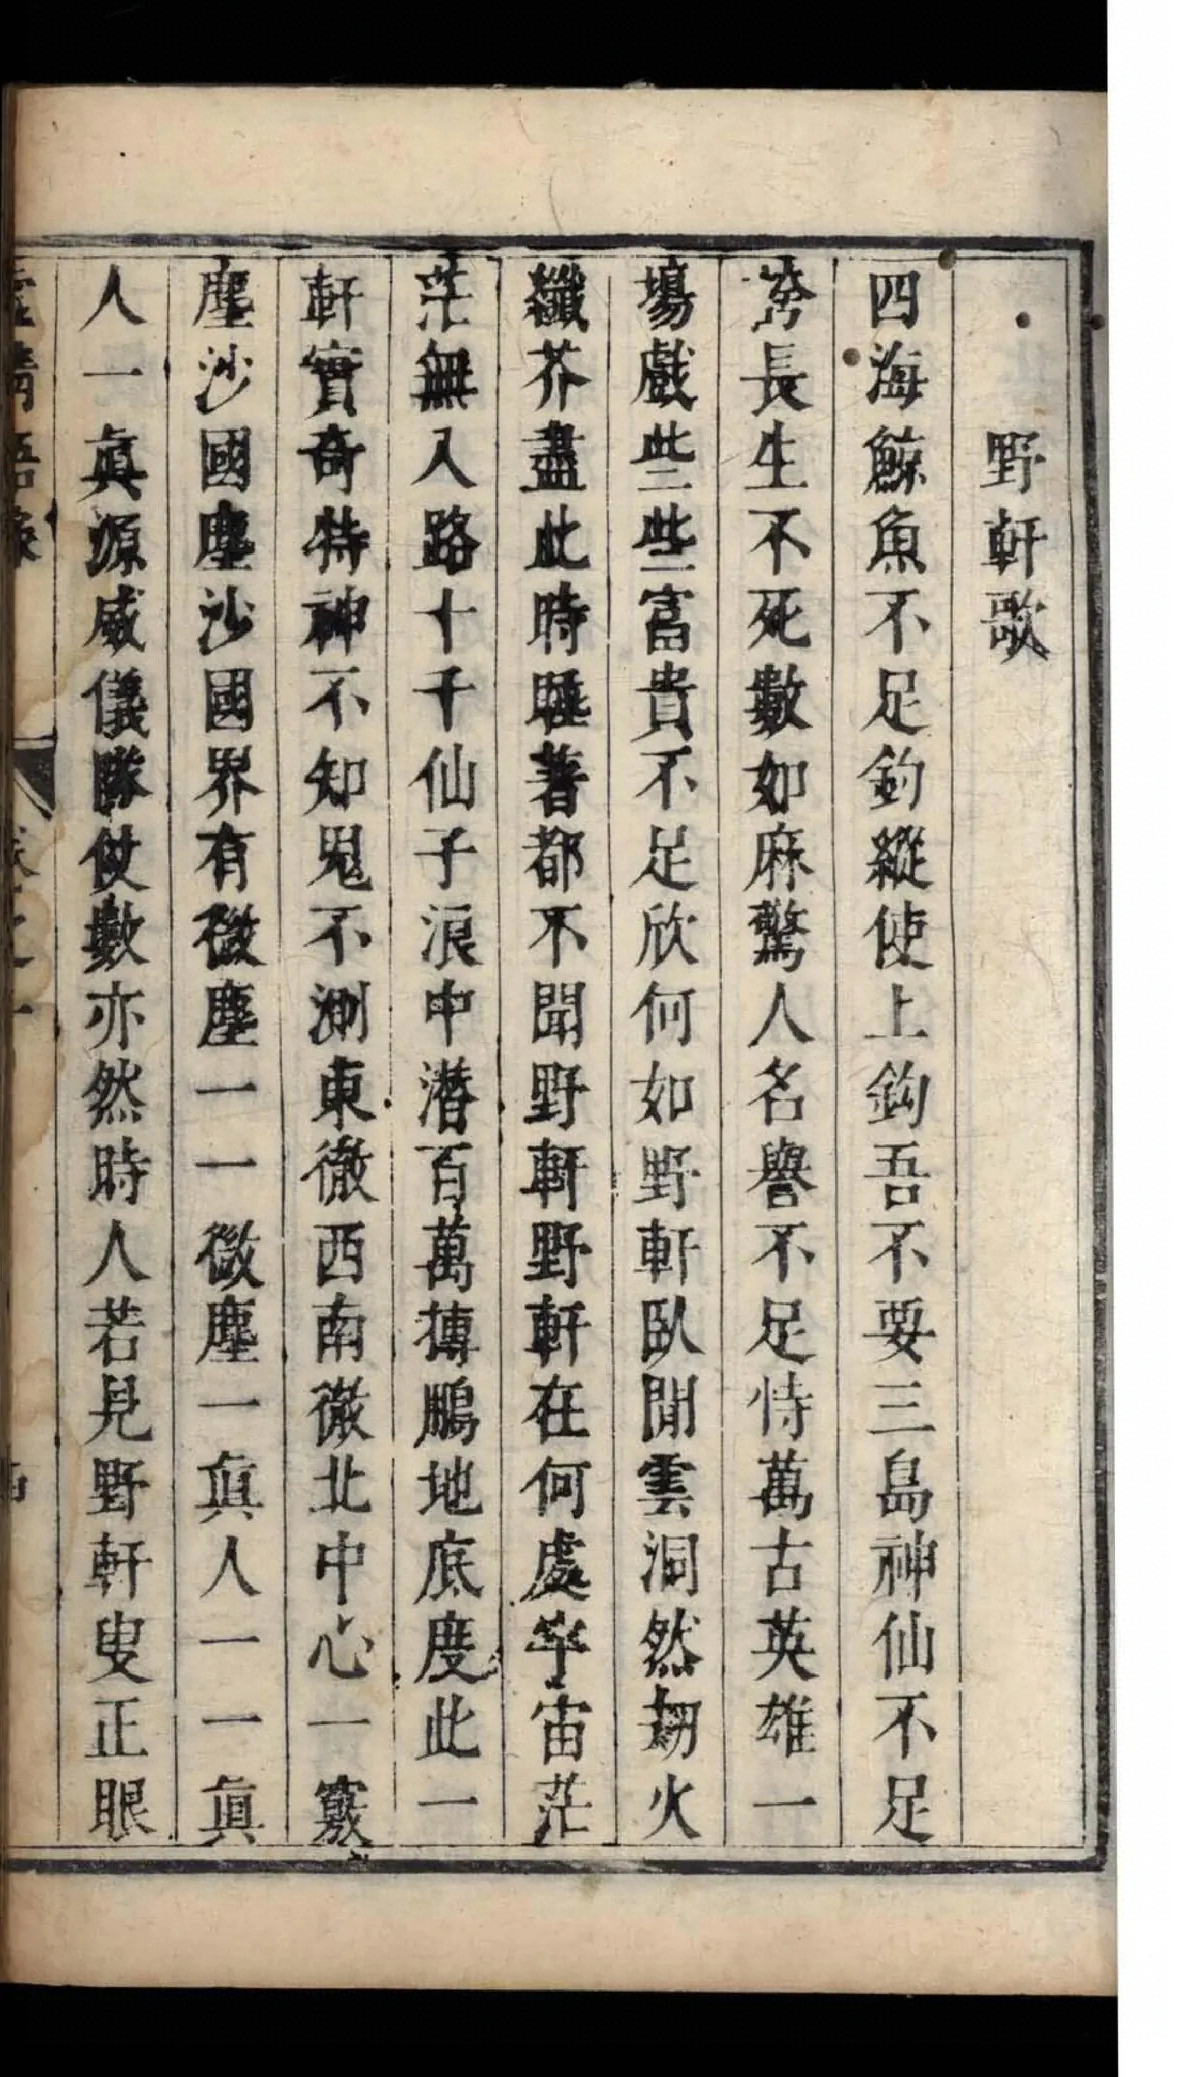 野軒歌
四海鯨魚不足鈎縱使上鈎吾不要三島神仙不足
誇長生不死數如麻驚人名譽不足恃萬古英雄一
場戲些些富貴不足欣何如野軒臥閒雲洞然劫火
纖芥盡此時睡著都不聞野軒野軒在何處宇宙茫
茫無入路十千仙子浪中潛百萬摶鵬地底度此一
軒實奇特神不知鬼不測東徹西南徹北中心一竅
塵沙國塵沙國界有微塵一一微塵一眞人一一眞
人一眞源威儀隊仗數亦然時人若見野軒叟正眼